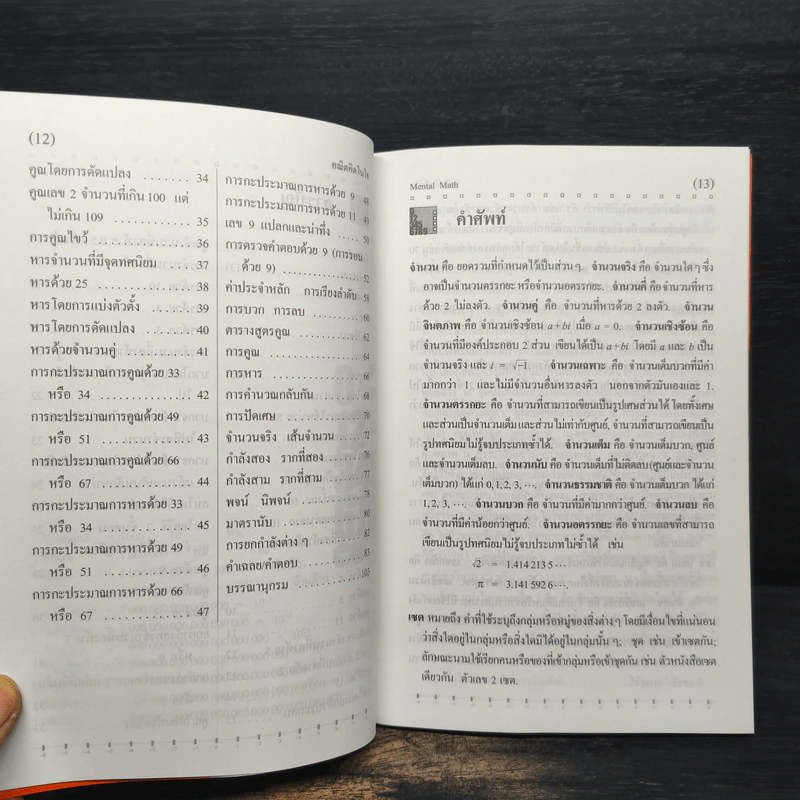 (12)
คณิตคิดในใจ
คูณโดยการดัดแปลง ....... 34
คูณเลข 2 จำนวนที่เกิน 100 แต่
ไม่เกิน 109 ............ 35
การคูณไขว้ ............... 36
หารจำนวนที่มีจุดทศนิยม ..... 37
หารด้วย 25 ............... 38
หารโดยการแบ่งตัวตั้ง ....... 39
หารโดยการดัดแปลง ........ 40
หารด้วยจำนวนคู่ ........... 41
การกะประมาณการคูณด้วย 33
หรือ 34 ................ 42
การกะประมาณการคูณด้วย 49
หรือ 51 ................ 43
การกะประมาณการคูณด้วย 66
หรือ 67 ................ 44
การกะประมาณการหารด้วย 33
หรือ 34 ................ 45
การกะประมาณการหารด้วย 49
หรือ 51 ................ 46
การกะประมาณการหารด้วย 66
หรือ 67 ................ 47
การกะประมาณการหารด้วย 9 48
การกะประมาณการหารด้วย 11 49
เลข 9 แปลกและน่าทึ่ง ..... 50
การตรวจคำตอบด้วย 9 (การรอน
ด้วย 9) ................ 52
ค่าประจำหลัก การเรียงลำดับ . 58
การบวก การลบ ............ 60
ตารางสูตรคูณ ............. 62
การคูณ .................. 64
การหาร ................. 66
การคำนวณกลับกัน ......... 68
การปัดเศษ ............... 70
จำนวนจริง เส้นจำนวน ...... 72
กำลังสอง รากที่สอง ........ 76
กำลังสาม รากที่สาม ........ 77
พจน์ นิพจน์ .............. 78
มาตรานับ ................ 80
การยกกำลังต่าง ๆ .......... 82
คำเฉลย/คำตอบ ............ 83
บรรณานุกรม .............. 103
Mental Math
(13)
คำศัพท์
จำนวน คือ ยอดรวมที่กำหนดไว้เป็นส่วน ๆ. จำนวนจริง คือ จำนวนใด ๆ ซึ่ง
อาจเป็นจำนวนตรรกยะ หรือจำนวนอตรรกยะ. จำนวนคี่ คือ จำนวนที่หาร
ด้วย 2 ไม่ลงตัว. จำนวนคู่ คือ จำนวนที่หารด้วย 2 ลงตัว. จำนวน
จินตภาพ คือ จำนวนเชิงซ้อน a+bi เมื่อ a = 0. จำนวนเชิงซ้อน คือ
จำนวนที่มีองค์ประกอบ 2 ส่วน เขียนได้เป็น a+bi โดยมี a และ b เป็น
จำนวนจริง และ i = √-1 จำนวนเฉพาะ คือ จำนวนเต็มบวกที่มีค่า
ค่ามากกว่า 1 และไม่มีจำนวนอื่นหารลงตัว นอกจากตัวมันเองและ 1.
จำนวนตรรกยะ คือ จำนวนที่สามารถเขียนเป็นรูปเศษส่วนได้ โดยทั้งเศษ
และส่วนเป็นจำนวนเต็ม และส่วนไม่เท่ากับศูนย์, จำนวนที่สามารถเขียนเป็น
รูปทศนิยมไม่รู้จบประเภทซ้ำได้. จำนวนเต็ม คือ จำนวนเต็มบวก, ศูนย์
และจำนวนเต็มลบ. จำนวนนับ คือ จำนวนเต็มที่ไม่ติดลบ (ศูนย์และจำนวน
เต็มบวก) ได้แก่ 0, 1, 2, 3, ⋯. จำนวนธรรมชาติ คือ จำนวนเต็มบวก ได้แก่
1, 2, 3, ⋯. จำนวนบวก คือ จำนวนที่มีค่ามากกว่าศูนย์. จำนวนลบ คือ
จำนวนที่มีค่าน้อยกว่าศูนย์. จำนวนอตรรกยะ คือ จำนวนเลขที่สามารถ
เขียนเป็นรูปทศนิยมไม่รู้จบประเภทไม่ซ้ำได้ เช่น
√2 = 1.414 213 5 ⋯
π = 3.141 592 6 ⋯.
เซต หมายถึง คำที่ใช้ระบุถึงกลุ่มหรือหมู่ของสิ่งต่าง ๆ โดยมีเงื่อนไขที่แน่นอน
ว่าสิ่งใดอยู่ในกลุ่มหรือสิ่งใดมิได้อยู่ในกลุ่มนั้น ๆ; ชุด เช่น เข้าเซตกัน;
ลักษณะนามใช้เรียกคนหรือของที่เข้ากลุ่มหรือเข้าชุดกัน เช่น ตัวหนังสือเซต
เดียวกัน ตัวเลข 2 เซต.